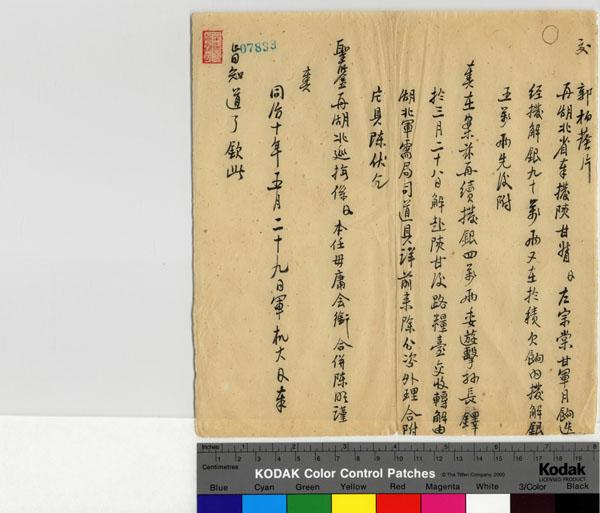 交
郭柏蔭片
再湖北省奉撥陝甘督臣左宗棠甘軍月餉迭
經撥解銀九十萬兩又在於積欠餉內撥解銀
五萬兩先後附
奏在案茲再續撥銀四萬兩委遊擊孫長鐸
於三月二十八日解赴陝甘後路糧臺交收轉解由
湖北軍需局司道具詳前來除分咨外理合附
片具陳伏乞
聖鑒再湖北巡撫係臣本任毋庸會銜合併陳明謹
奏
同治十年五月二十九日軍机大臣奉
旨知道了欽此
07833
Inches
Centimetres
KODAK Color Control Patches
© The Tiffen Company, 2000
Kodak
LICENSED PRODUCT
Blue Cyan Green Yellow Red Magenta White 3/Color Black